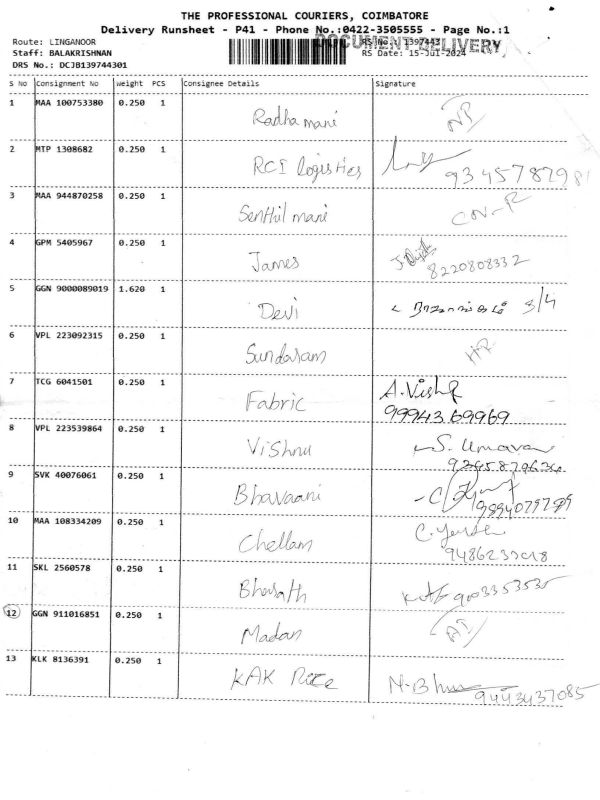 THE PROFESSIONAL COURIERS, COIMBATORE
Delivery Runsheet - P41 - Phone No.:0422-3505555 - Page No.:1
DOCUMENT DELIVERY
Route: LINGANOOR RS No.: 1397443
Staff: BALAKRISHNAN RS Date: 15-Jul-2024
DRS No.: DCJB139744301
S No Consignment No Weight PCS Consignee Details Signature
1 MAA 100753380 0.250 1 Radhamani
2 MTP 1308682 0.250 1 RCI logistics 9345787981
3 MAA 944870258 0.250 1 Senthil mani
4 GPM 5405967 0.250 1 James 8220808332
5 GGN 9000089019 1.620 1 Devi 3/4
6 VPL 223092315 0.250 1 Sundaram
7 TCG 6041501 0.250 1 Fabric A.Vish
9994369969
8 VPL 223539864 0.250 1 Vishnu S. Umava
9 SVK 40076061 0.250 1 Bhavaani
10 MAA 108334209 0.250 1 Chellam
11 SKL 2560578 0.250 1 Bharath 9003353535
12 GGN 911016851 0.250 1 Madan
13 KLK 8136391 0.250 1 KAK Rice 9443437085